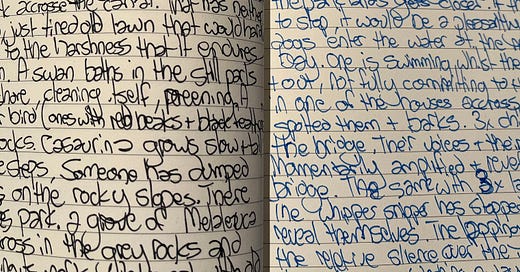 accrosse the canal. that has neither
, just tired old lawn that would hard
to the harshness that it endures
n. A swan baths in the still parts
hore cleaning itself, preening. A
bird (ones with red beaks + black feather
ocks. Casaurina grows slow + tal
e steps, Someone has dumped
s on the rocky slopes. There
s park, a grove of Melaleuca
ross in the grey rocks and
to stop it would be a pleasant w
dogs enter the water at the
bay. one is swimming whilst the
t out, not fully committing to
in one of the houses accross
spotes them + barks. 3x ch
the bridge. Their voices + the
Momentarily amplified + reve
bridge. The same with 3x
The whipper sniper has stopped
reveal themselves. The
the relative silence over the